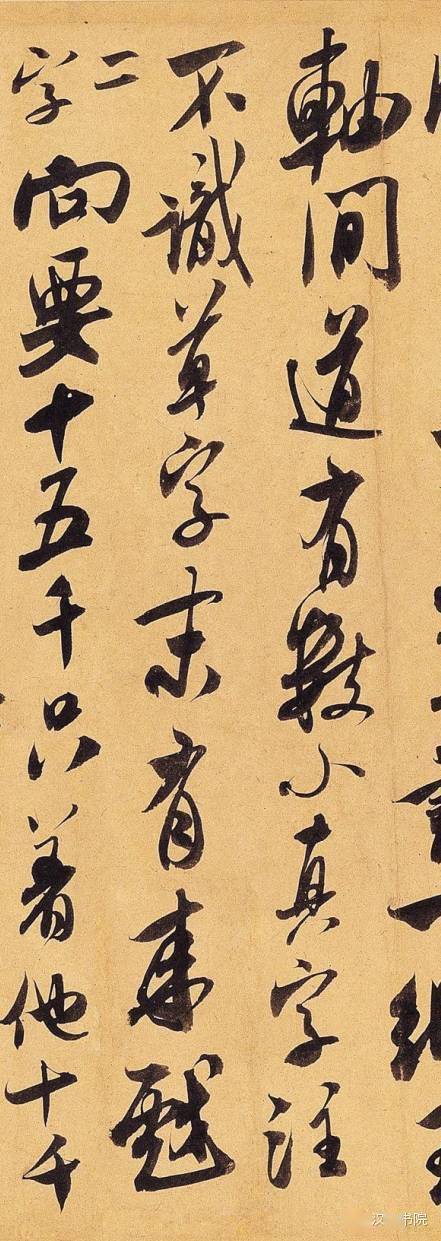 軸間道有數小真字注
不識草字末有來戩
二字向要十五千只着他十千
汉 书院